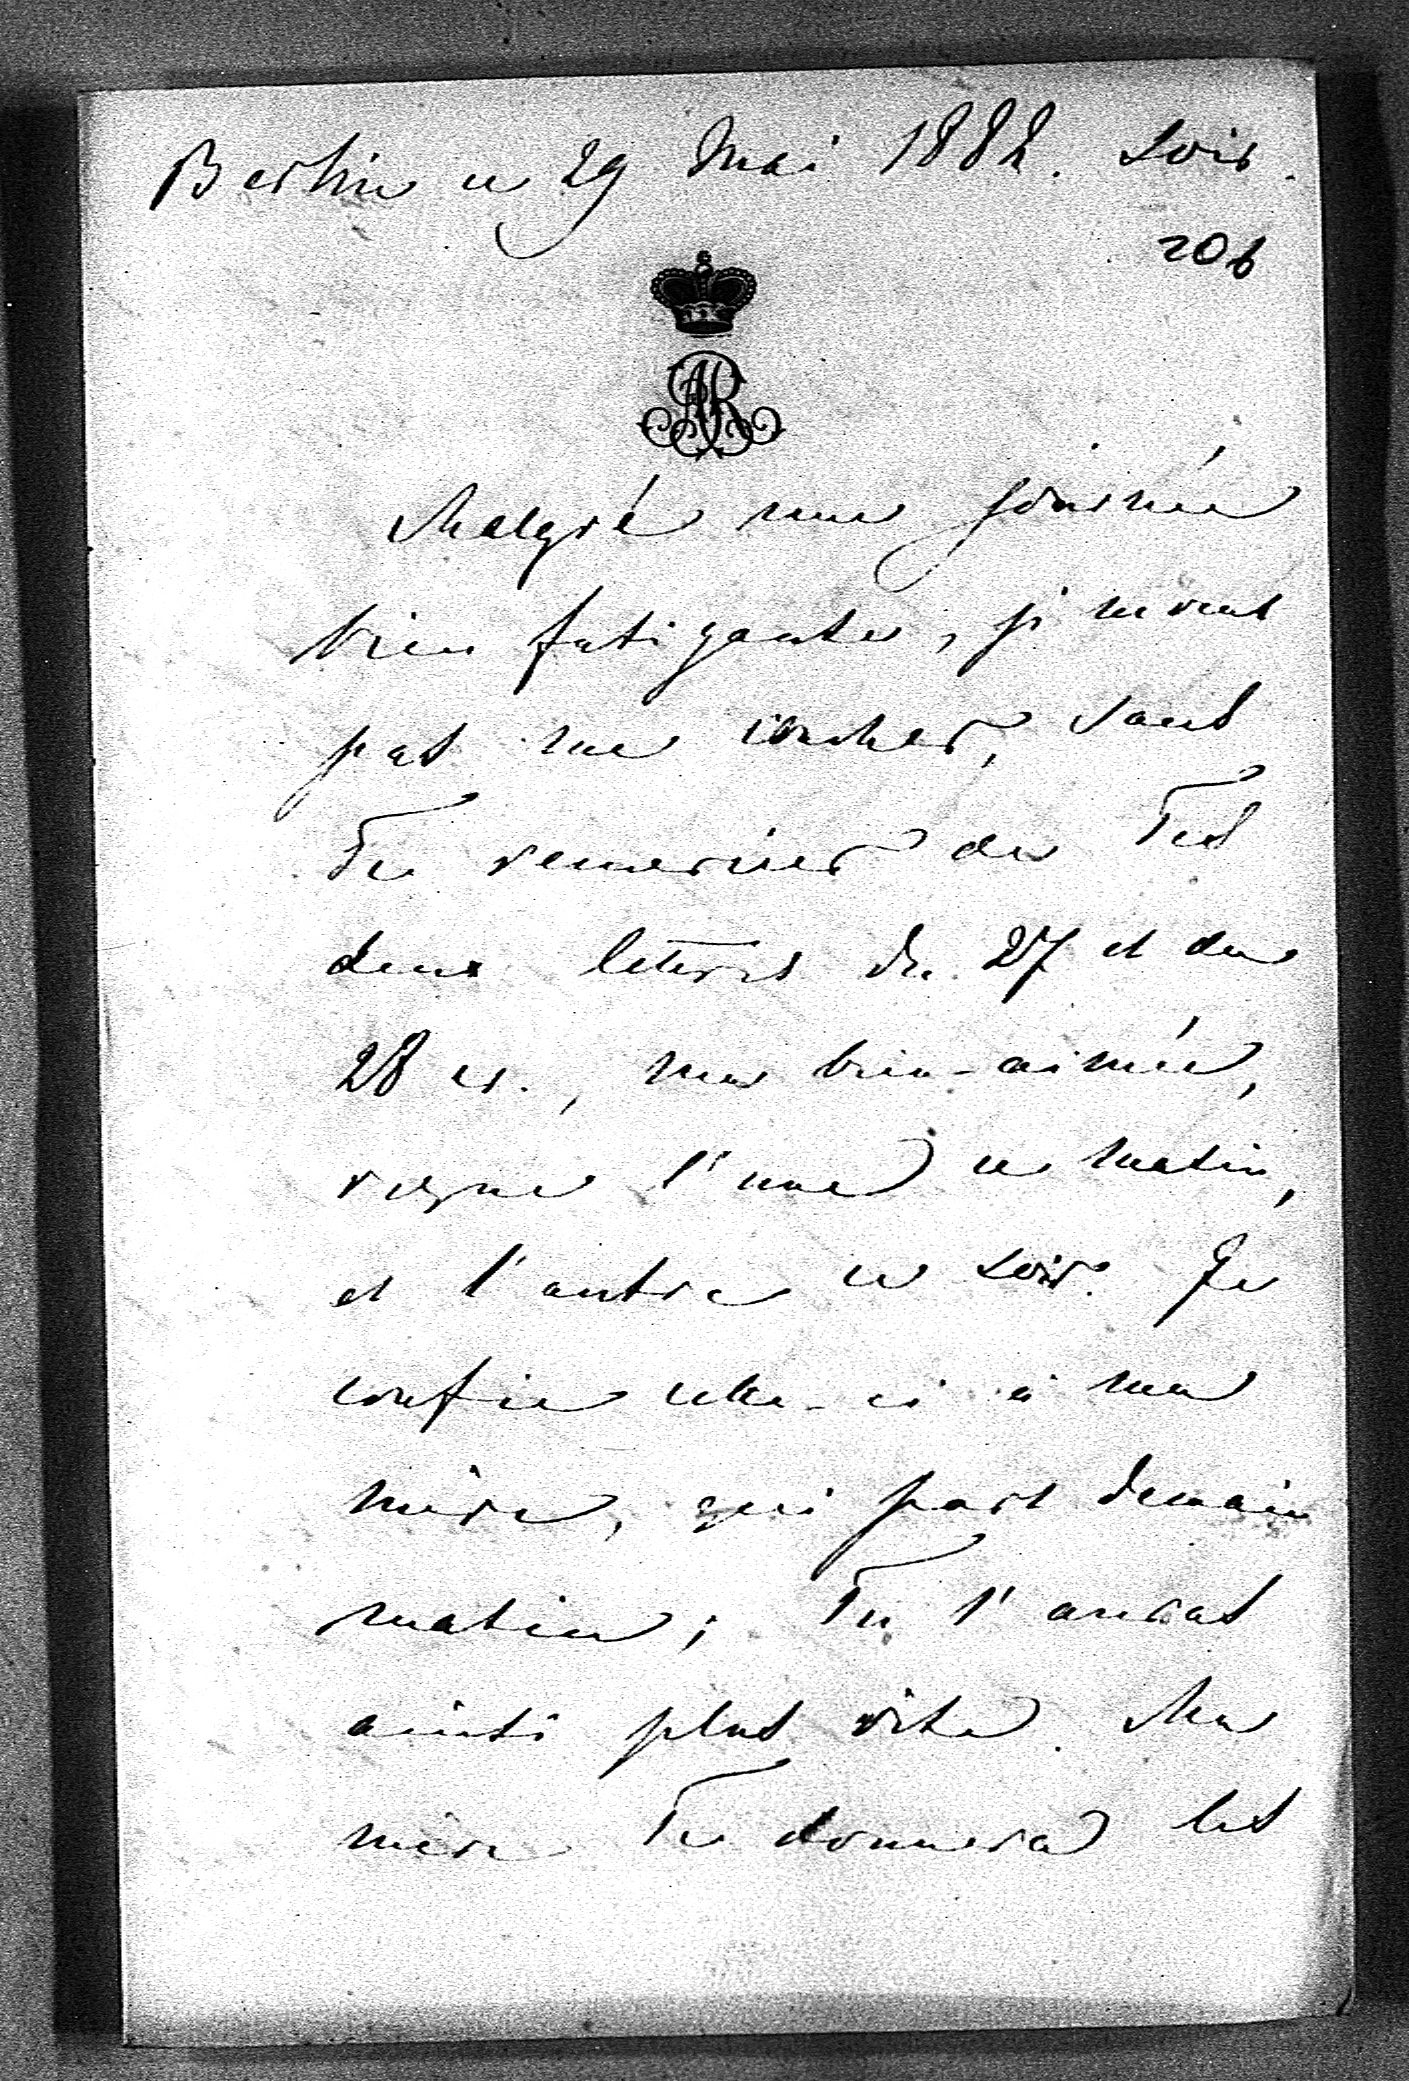 Berlin ce 29 Mai 1882. Soir.
206
AR
Malgré une journée
bien fatigante, je ne veux
pas me coucher, sans
Te remercier de Tes
deux lettres du 27 et du
28 cr., ma bien-aimée,
reçue l'une ce matin,
et l'autre ce soir. Je
confie celle-ci à ma
mère, qui part demain
matin; Tu l'auras
ainsi plus vite. Ma
mère Te donnera les